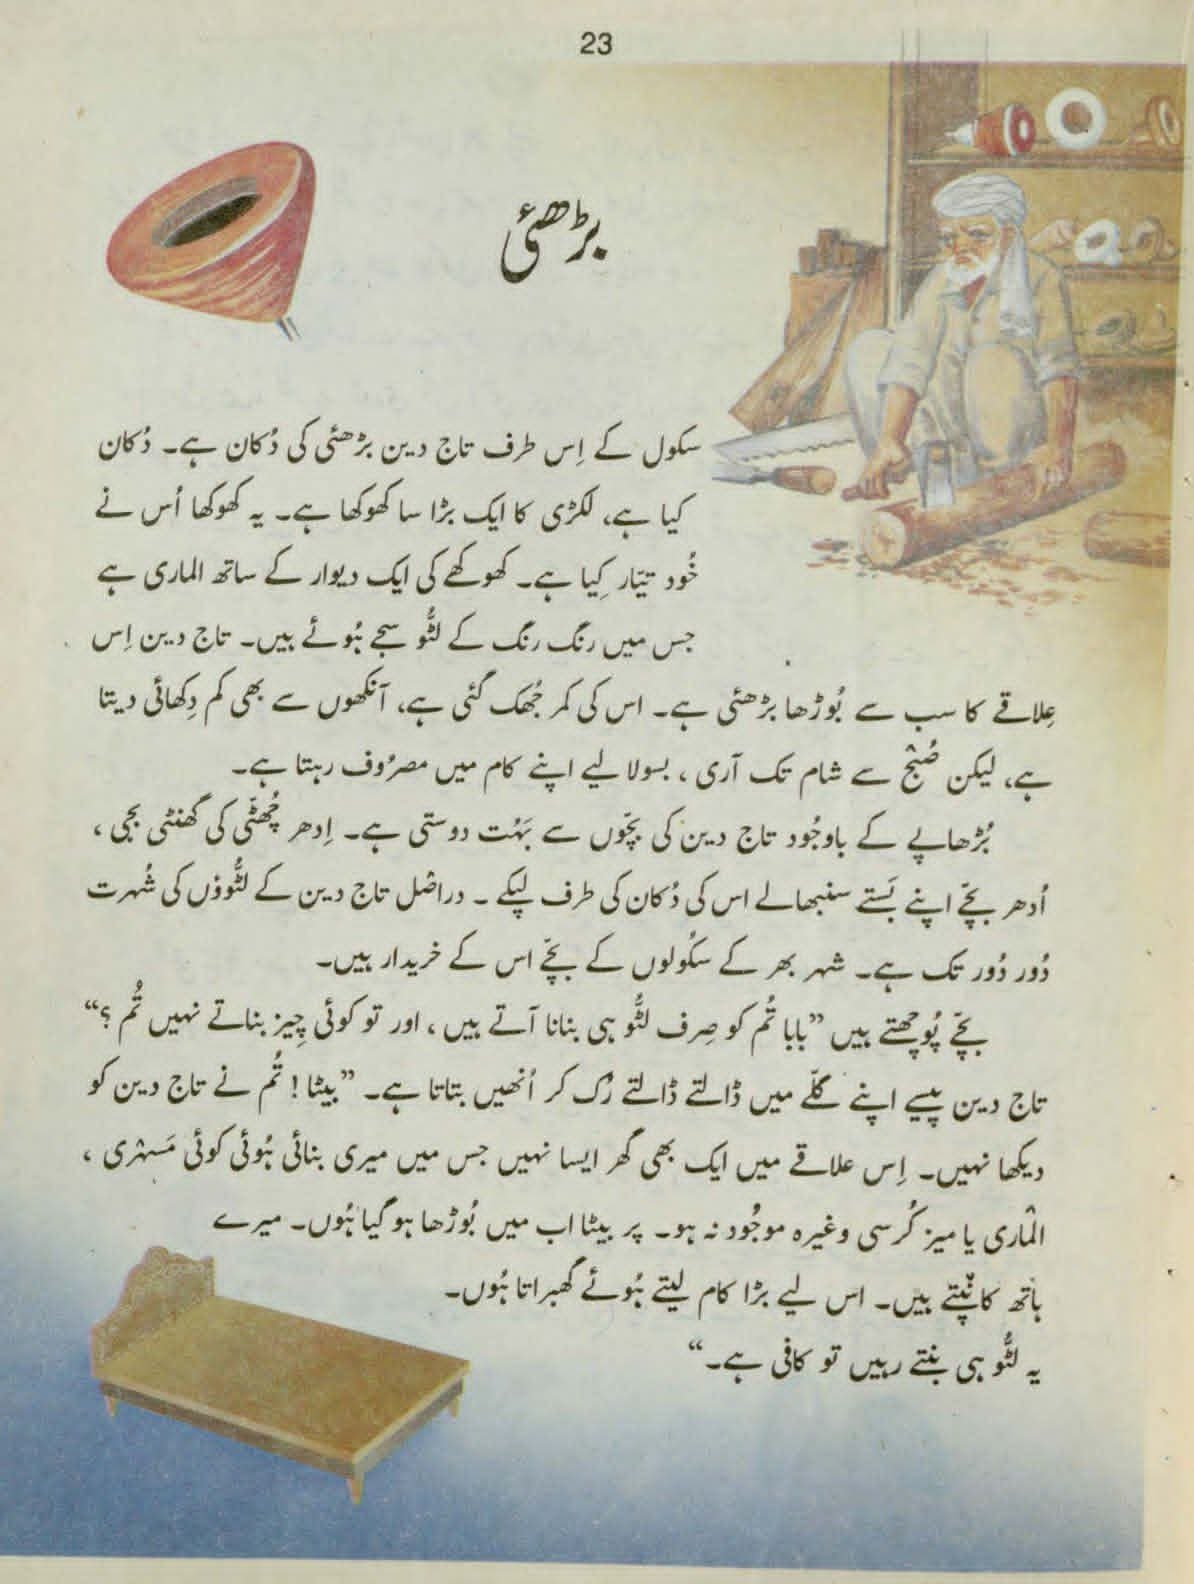 23
بڑھئی
سکول کے اِس طرف تاج دین بڑھئی کی دُکان ہے۔ دُکان
کیا ہے، لکڑی کا ایک بڑا سا کھوکھا ہے۔ یہ کھوکھا اُس نے
خُود تیّار کِیا ہے۔ کھوکھے کی ایک دیوار کے ساتھ الماری ہے
جس میں رنگ رنگ کے لٹُّو سجے ہُوئے ہیں۔ تاج دین اِس
عِلاقے کا سب سے بُوڑھا بڑھئی ہے۔ اس کی کمر جُھک گئی ہے، آنکھوں سے بھی کم دِکھائی دیتا
ہے، لیکن صُبْح سے شام تک آری ، بسولا لیے اپنے کام میں مصرُوف رہتا ہے۔
بُڑھاپے کے باوجُود تاج دین کی بچّوں سے بَہُت دوستی ہے۔ اِدھر چُھٹّی کی گھنٹی بجی ،
اُدھر بچّے اپنے بَستے سنبھالے اس کی دُکان کی طرف لپکے ۔ دراصْل تاج دین کے لٹُّوؤں کی شُہرت
دُور دُور تک ہے۔ شہر بھر کے سکُولوں کے بچّے اس کے خریدار ہیں۔
بچّے پُوچھتے ہیں ”بابا تُم کو صِرف لٹُّو ہی بنانا آتے ہیں ، اور تو کوئی چِیز بناتے نہیں تُم ؟“
تاج دین پیسے اپنے گلّے میں ڈالتے ڈالتے رُک کر اُنھیں بتاتا ہے۔ ”بیٹا ! تُم نے تاج دین کو
دیکھا نہیں۔ اِس علاقے میں ایک بھی گھر ایسا نہیں جس میں میری بنائی ہُوئی کوئی مَسہْری ،
الْماری یا میز کُرسی وغیرہ موجُود نہ ہو۔ پر بیٹا اب میں بُوڑھا ہو گیا ہُوں۔ میرے
ہاتھ کانْپتے ہیں۔ اس لیے بڑا کام لیتے ہُوئے گھبراتا ہُوں۔
یہ لٹُّو ہی بنتے رہیں تو کافی ہے۔“